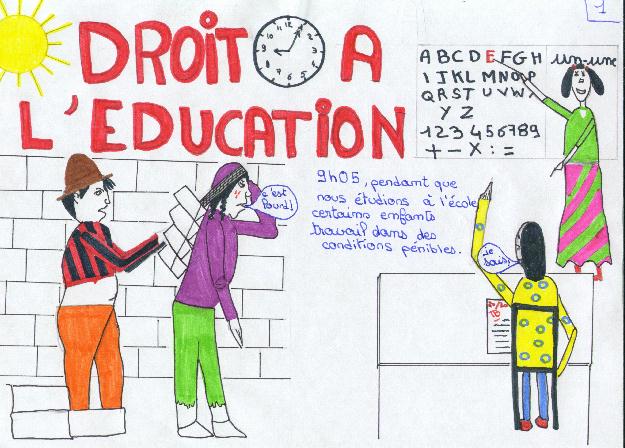 1
DROIT A
L'EDUCATION
A B C D E F G H
I J K L M N O P
Q R S T U V W X
Y Z
1 2 3 4 5 6 7 8 9
+ - X : =
un-une
9h05, pendant que
nous étudions à l'école
certains enfants
travail dans des
conditions pénibles.
c'est
lourd!
Je
sais!
20/20
TB